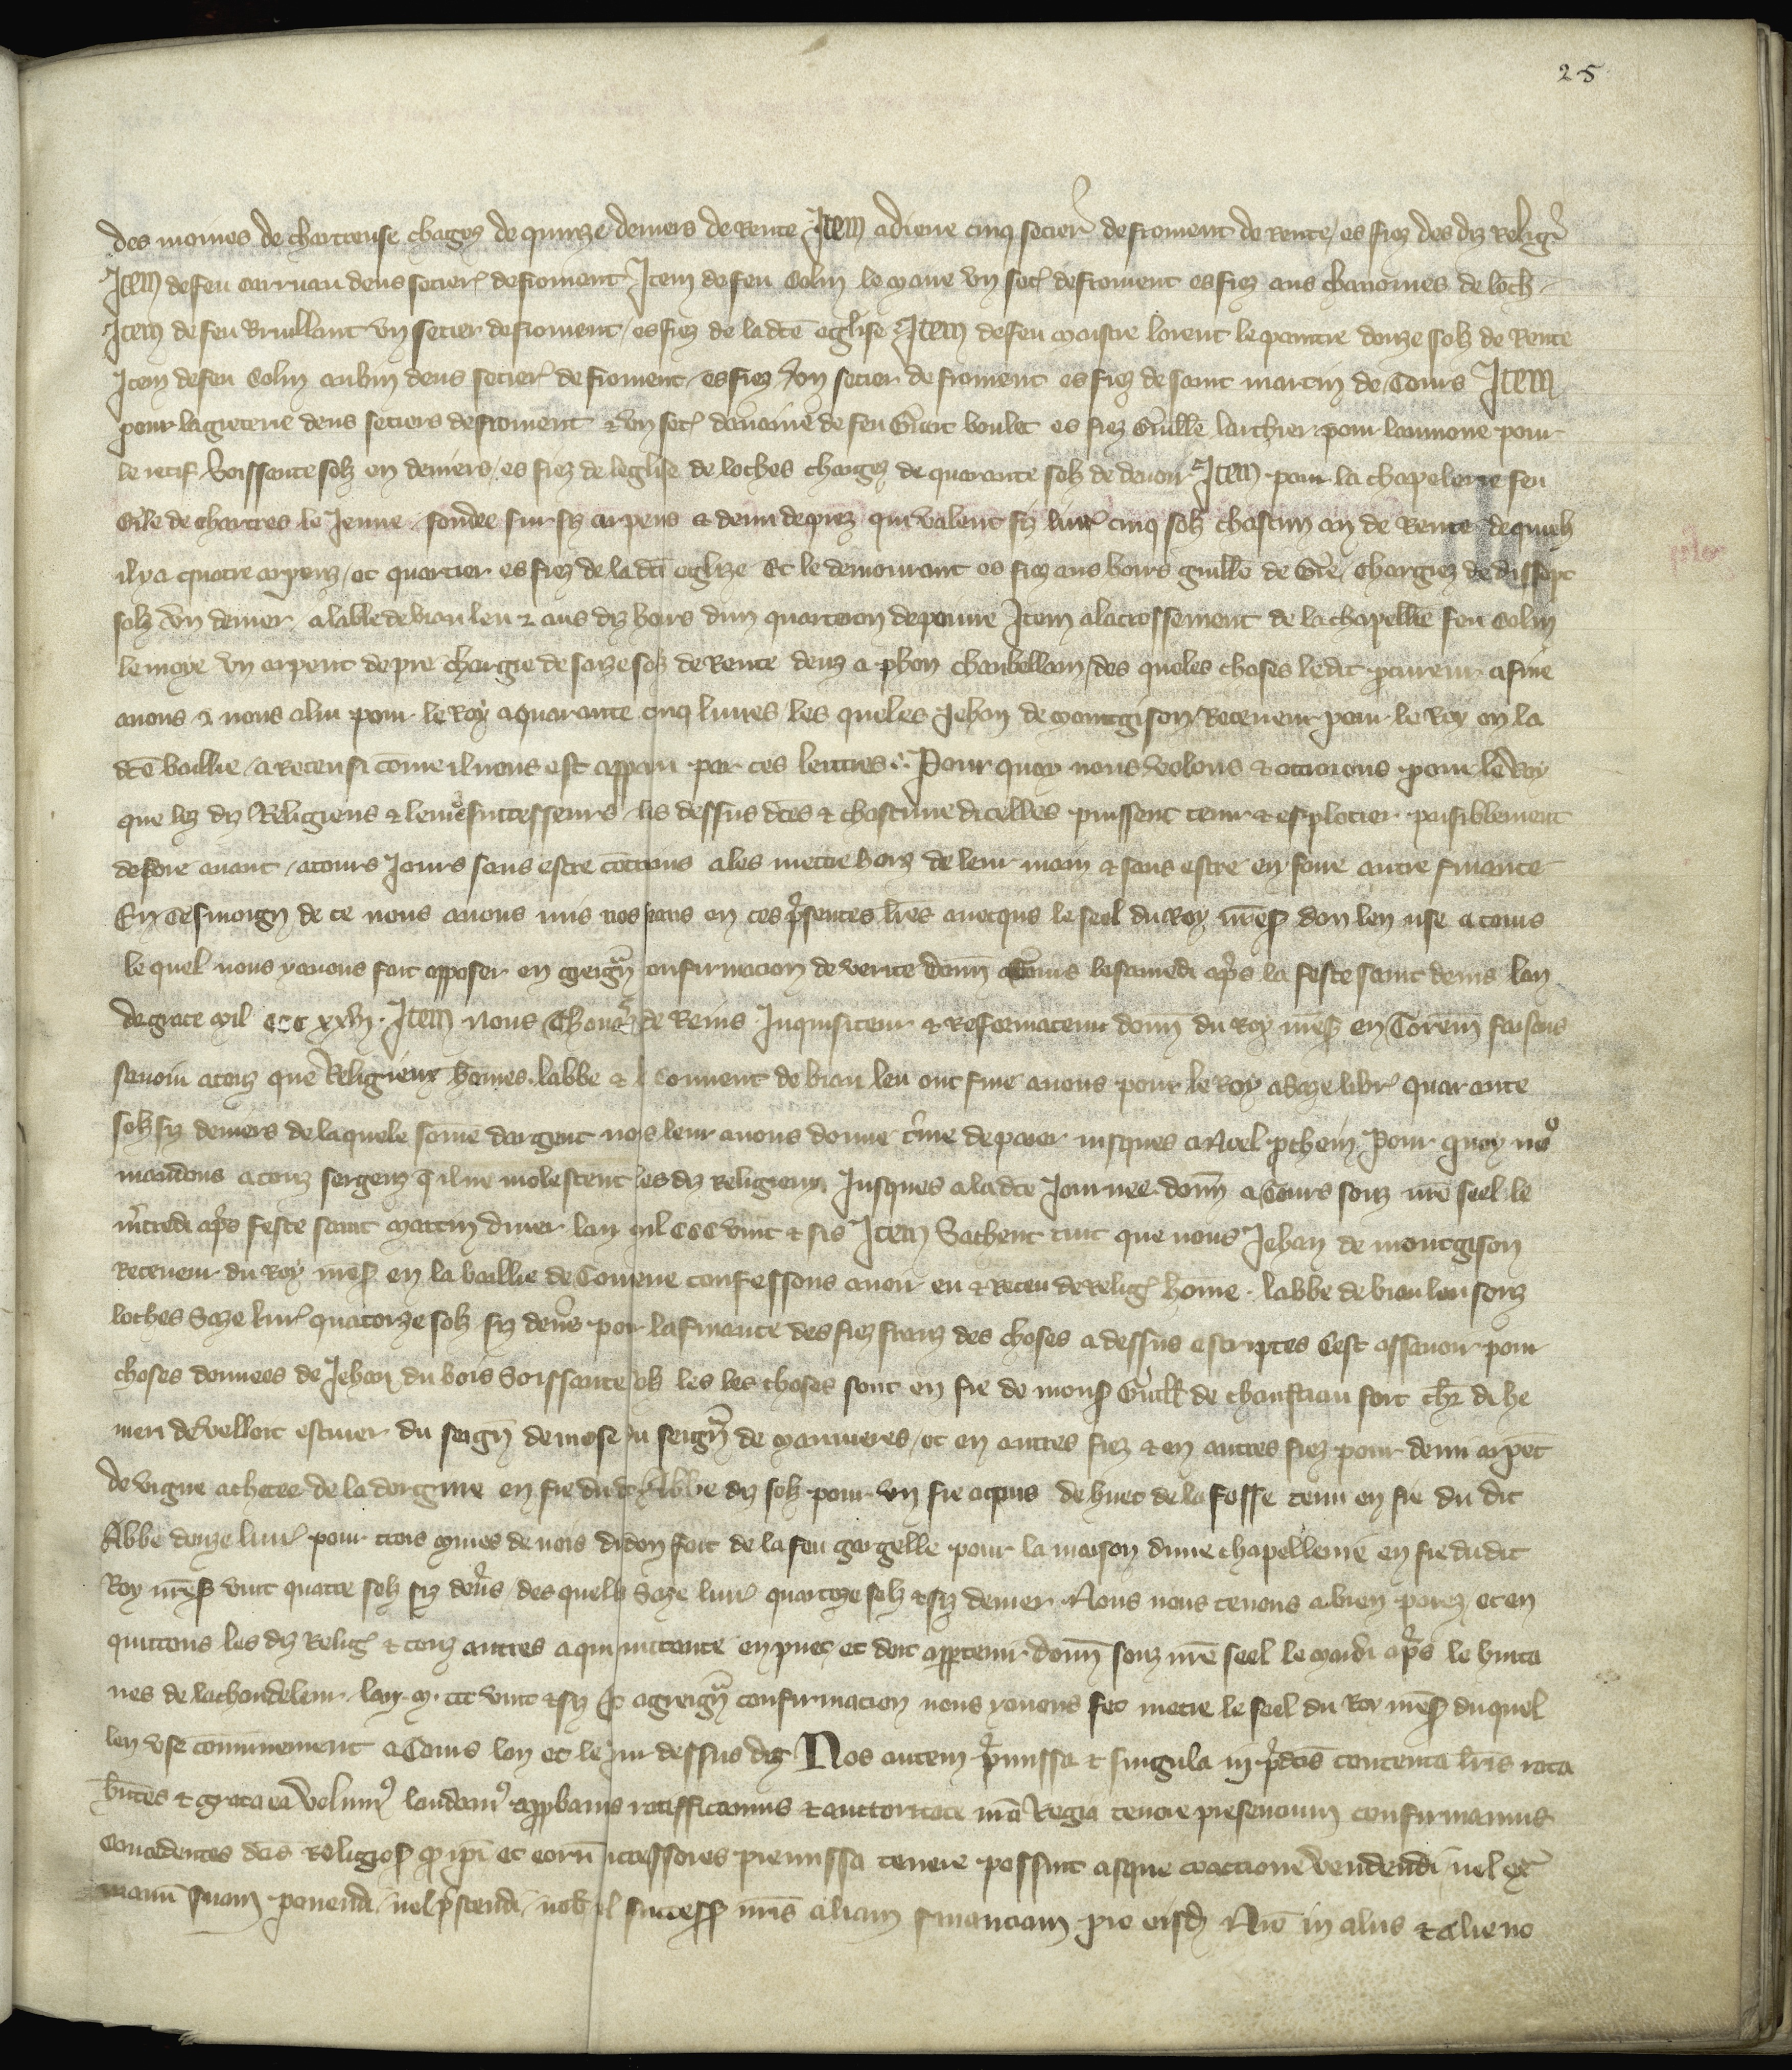 25
des moines de chartreuse chagez de quinze deniers de Rente Item a diene cinq setiers de froment de rente es fiez des diz Relig
Item de feu carruau deus setiers de froment Item de feu Colin le moine un set de froment es fiez aus chanoines de loch
Item de feu Bruillant un setier de froment es fiez de la dce eglise Item de feu maistre lorent le paintre douze solz de Rente
Item de feu Colin aubin deus setiers de froment es fiez Item un setier de froment es fiez de saint martin de Tours Item
pour deus setiers de froment & un set davaine de feu boulet es fiez Guille larchier pour laumone pour
le soissante solz en deniers es fiez de leglise de loches chargez de quarante solz de devoir Item pour la chapelerie feu
Gile de chartres le Jeune fondee sur sis arpens & demi de prez qui valent sis livr cinq solz chascun an de Rente
il y a quatre arpenz et quartier es fiez de la dce eglize Et le demourant es fiez aus hoirs guille de chargiez de dissept
solz un denier a labbe de biau leu & aus diz hoirs dun quarteron de poivre Item a lacressement de la chapellie feu Colin
le moye un arpent de pre chargie de saze solz de Rente deuz a phon chanbellain des queles choses le dit procureur a fine
avons & nous a lui pour le Roy a quarante cinq livres les queles Jehan de montgison Receveur pour le Roy en la
dce baillie a receu si come il nous est apparu par ces lettres Pour quoy nous volons & otroions pour le Roy
que les diz Religieus & leurs successeurs les dessus dces & chascune dicelles puissent tenir & esploitier paisiblement
desore avant a tours Jours sans estre a les mettre hors de leur main & sans estre en faire autre finance
En Tesmoign de ce nous avons mis nos en ces presentes lres avecques le seel du Roy nre sire don len use a tours
le quel nous y avons fait apposer en greign confirmacion de verite donn a Tours le samedi apres la feste saint denis lan
de grace mil CCC XXVI Item Nous Thomas de Reins Inquisiteur & Reformateur donn du Roy nre sire en Toreine faisons
savoir a touz que Religieux homes labbe & le Couvent de biau leu ont fine avous pour le Roy a saze libr quarante
solz sis deniers de laquele some dargent nos leur avons donne terme de paier jusques a Noel Pour quoy nous
mandons a touz sergenz quil ne molestent les diz Religieux Jusques a la dce Journee donn a Tours souz nre seel le
mcredi apres feste saint martin diver lan mil CCC vint & sis Item Sachent tuit que nous Jehan de montgison
Receveur du Roy nre sire en la baillie de Toreine confessons avoir eu & Receu de Relig home labbe de biau leu souz
loches Saze livr quatorze solz sis den por la finance des fiez franz des choses a dessus escriptes Cest assavoir pour
choses donnees de Jehan du bois Soissante solz les les choses sont en fie de mons Guill de
de velloit escuier du seign de mose du seign de marmeres et en autres fiez & en autres fiez pour demi arpent
de vigne achetee de la en fie du dit Abbe diz solz pour un fie acquis de huet de la fosse tenu en fie du dit
Abbe douze livr pour trois mines de nois didon fait de la feu gorgelle pour la maison dune chapellenie en fie du dit
Roy nre sire vint quatre solz sis deniers des quels Saze livr quatorze solz & sis denier Nous nous tenons a bien paiez et en
quittons les diz Relig & touz autres a qui quittance en puet et doit appartenir donn souz nre seel le mardi apres le huita
nes de la chandeleur lan M CCC vint & sis Et a greign confirmacion nous y avons fet metre le seel du Roy nre sire duquel
len use communement a Tours lan et le jour dessus diz Nos autem premissa & singula in predcis contenta lris rata
hntes & grata ea volumus laudamus approbamus ratifficamus & auctoritate nra Regia tenore presencium confirmamus
Concedentes dcis Religios quod ipi et eorum successores premissa tenere possint absque coactione vendendi vel extra
manum suam ponendi vel prestandi nob vel success nris aliam financiam pro eisd Nro in aliis & alieno